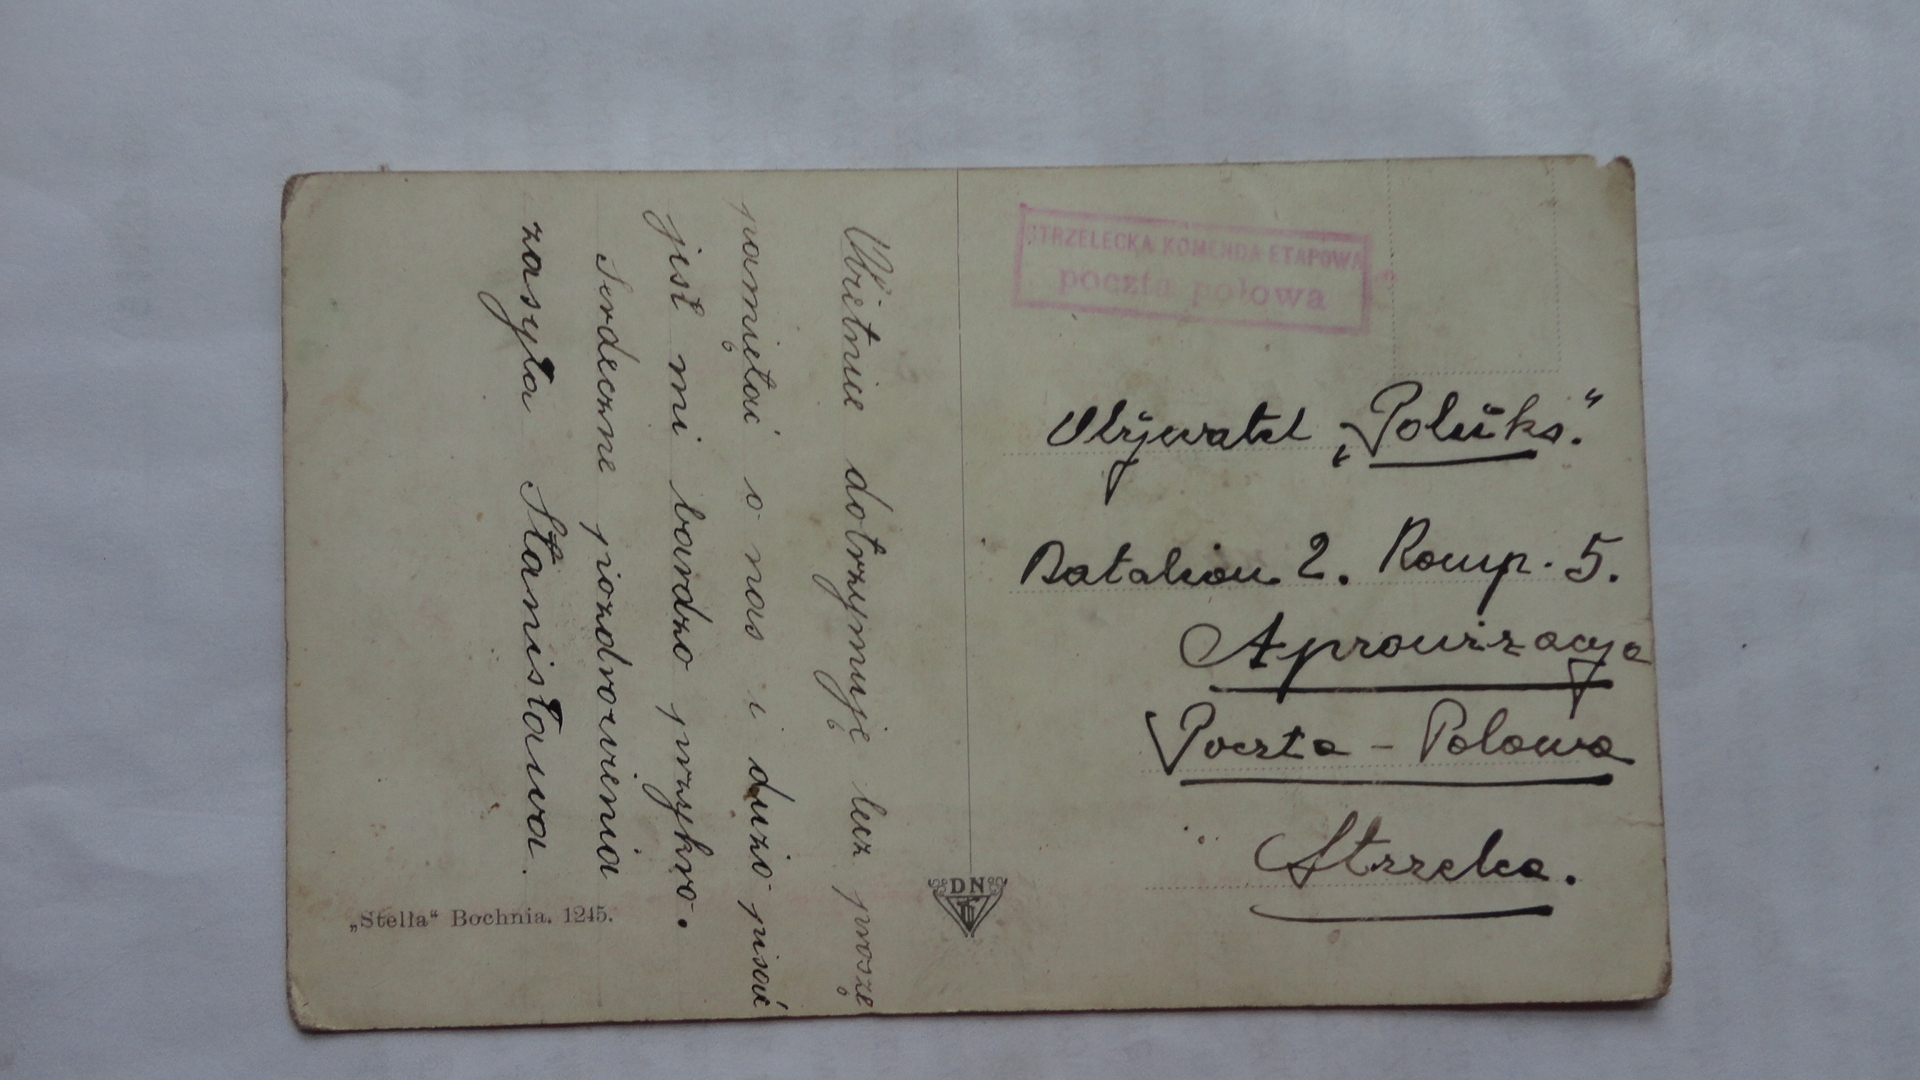 Obietnice dotrzymuję lecz proszę
pamiętać o nas i dużo pisać
jest mi bardzo przykro.
Serdeczne pozdrowienia
zasyła Stanisława.
„Stella“ Bochnia. 1245.
DN
STRZELECKA KOMENDA ETAPOWA
poczta polowa
Obywatel „Poluks.“
Batalion 2. Komp. 5.
Aprowizacya
Poczta – Polowa
Strzelca.